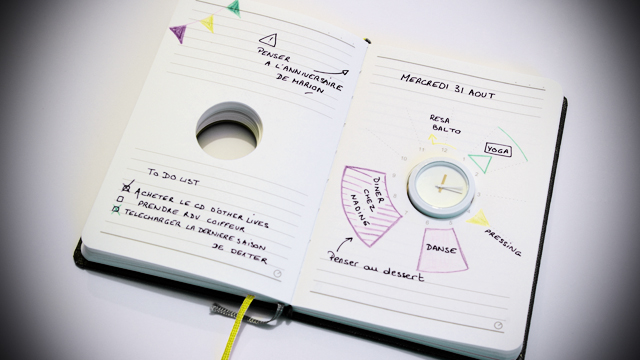 PENSER
A L'ANNIVERSAIRE
DE MARION
TO DO LIST
ACHETER LE CD D'OTHER LIVES
PRENDRE RDV COIFFEUR
TELECHARGER LA DERNIERE SAISON
DE DEXTER
MERCREDI 31 AOUT
RESA
BALTO
YOGA
PRESSING
DANSE
DINER
CHEZ
NADING
Penser au dessert